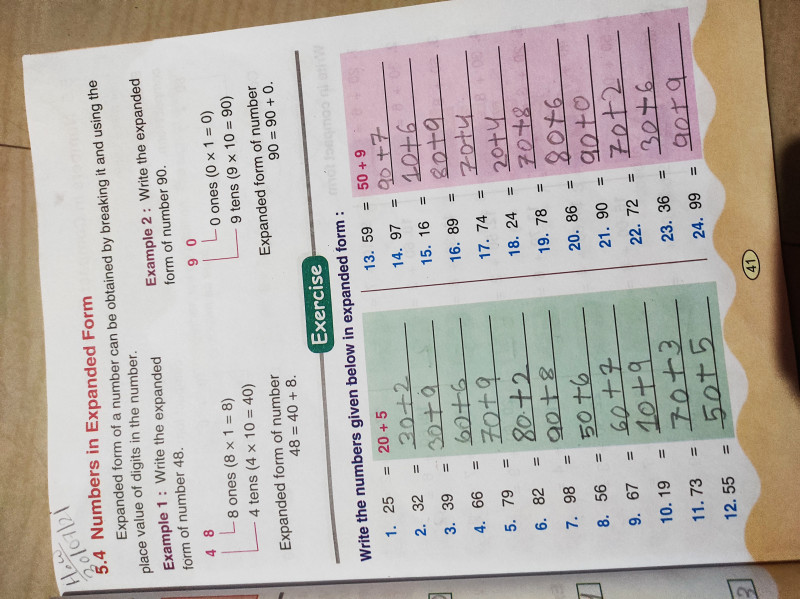 5.4 Numbers in Expanded Form
Expanded form of a number can be obtained by breaking it and using the
place value of digits in the number.
Example 1 : Write the expanded
form of number 48.
4 8
8 ones (8 × 1 = 8)
4 tens (4 × 10 = 40)
Expanded form of number
48 = 40 + 8.
Example 2 : Write the expanded
form of number 90.
9 0
0 ones (0 × 1 = 0)
9 tens (9 × 10 = 90)
Expanded form of number
90 = 90 + 0.
Exercise
Write the numbers given below in expanded form :
1. 25 = 20 + 5
2. 32 = 30+2
3. 39 = 30+9
4. 66 = 60+6
5. 79 = 70+9
6. 82 = 80+2
7. 98 = 90+8
8. 56 = 50+6
9. 67 = 60+7
10. 19 = 10+9
11. 73 = 70+3
12. 55 = 50+5
13. 59 = 50 + 9
14. 97 = 90+7
15. 16 = 10+6
16. 89 = 80+9
17. 74 = 70+4
18. 24 = 20+4
19. 78 = 70+8
20. 86 = 80+6
21. 90 = 90+0
22. 72 = 70+2
23. 36 = 30+6
24. 99 = 90+9
41
3